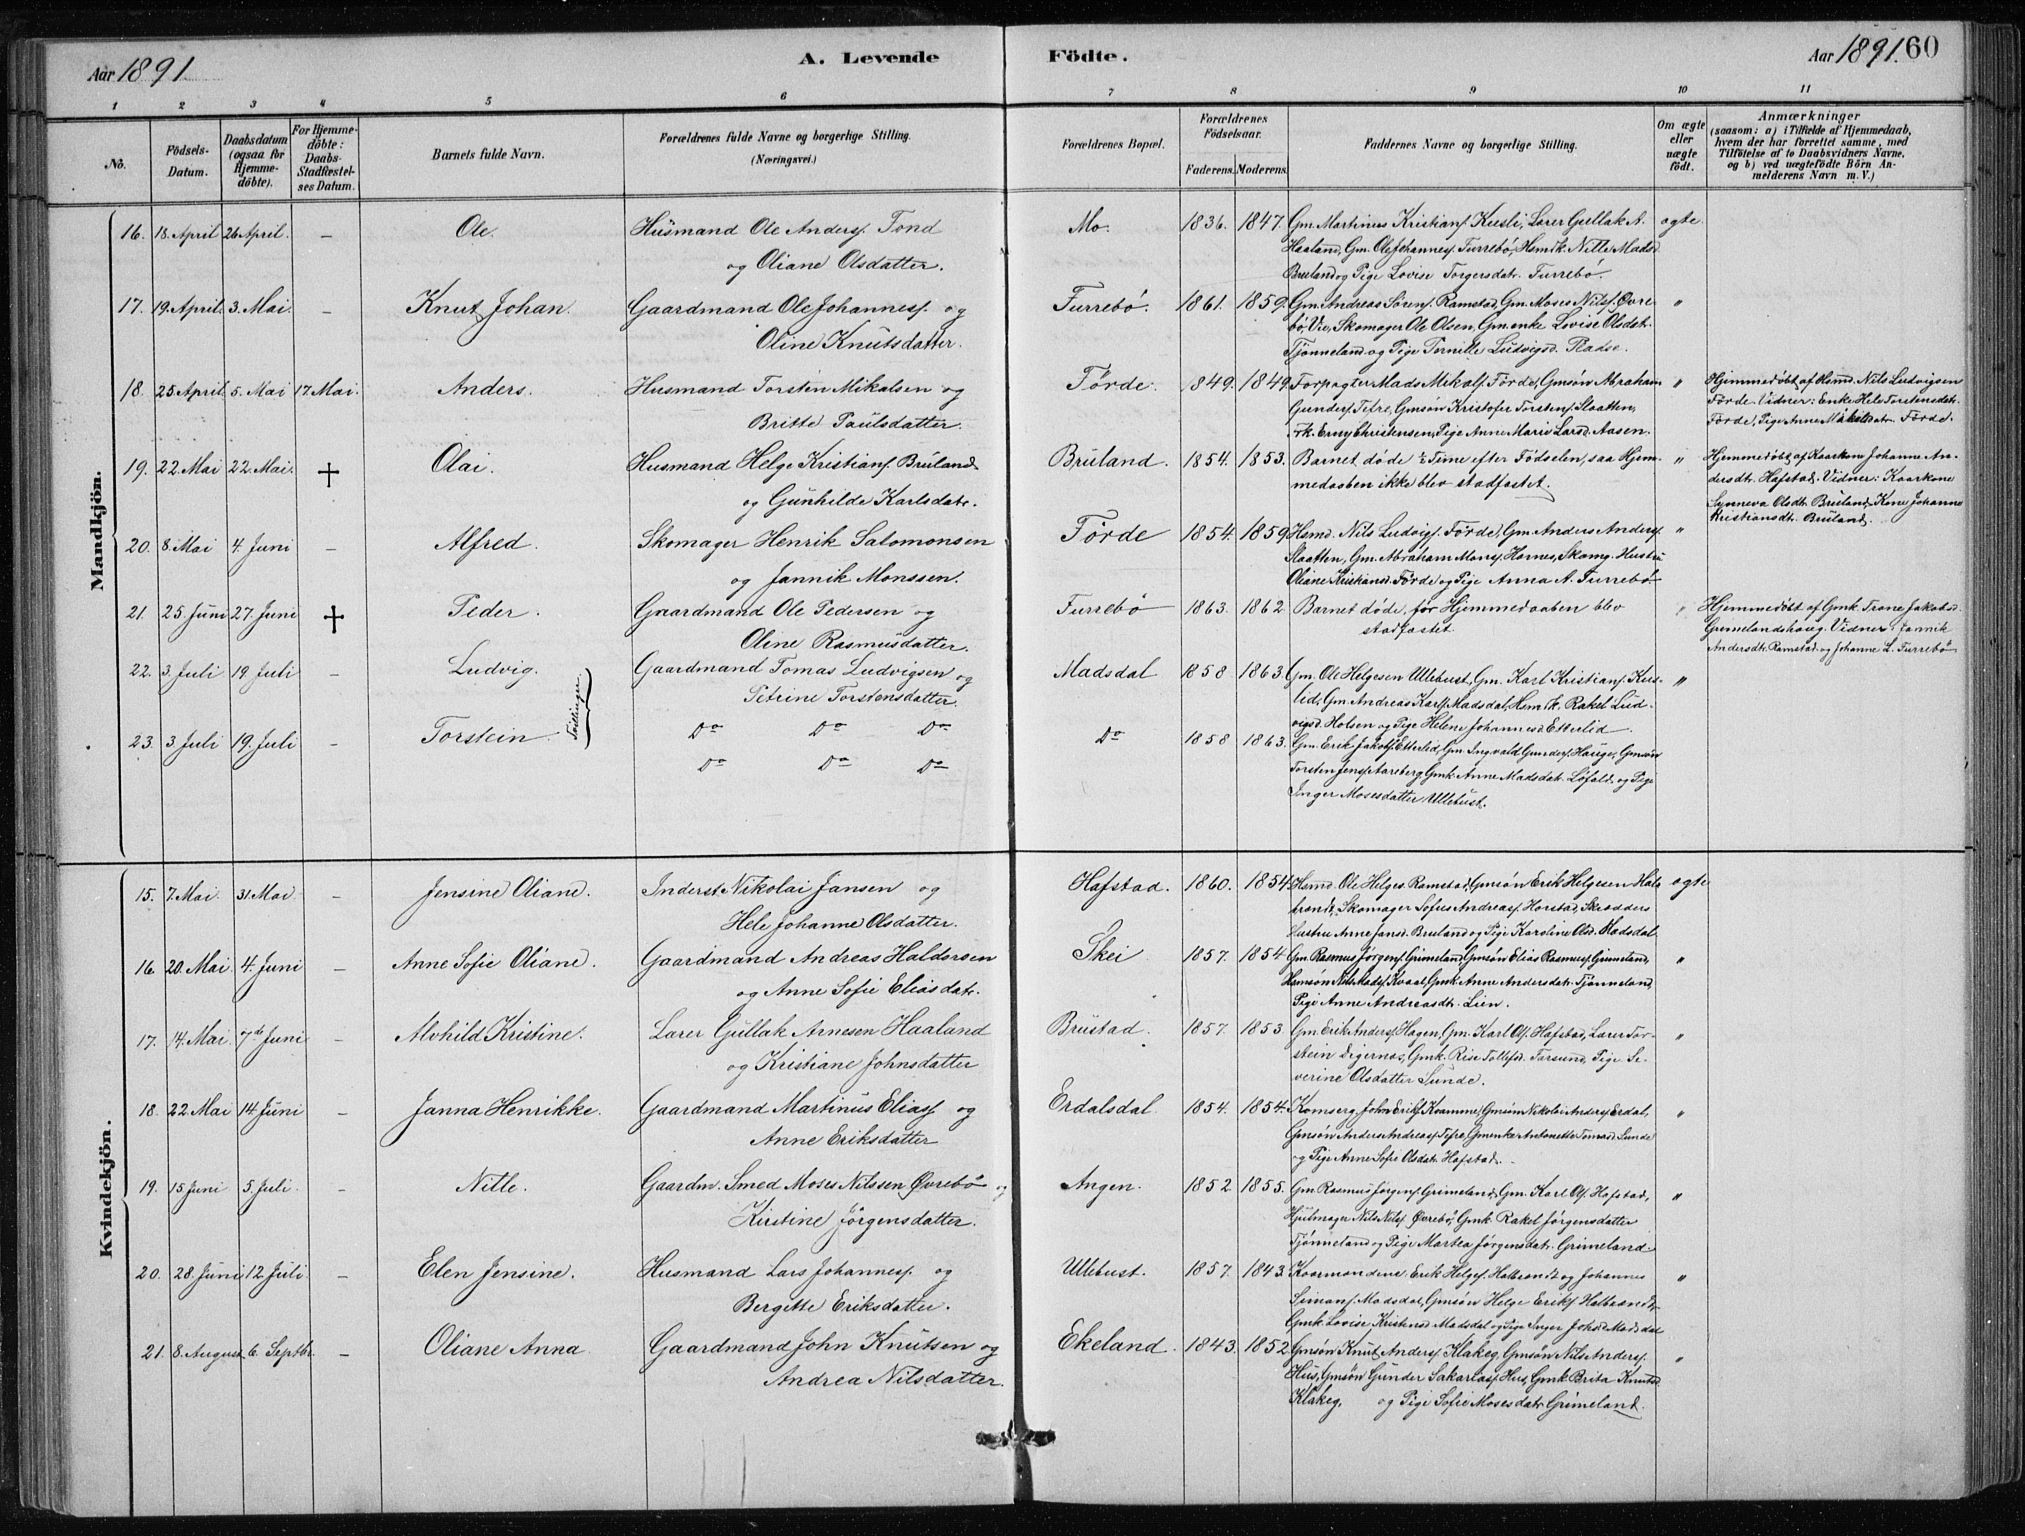 Aar 1891.
A. Levende
Födte.
Aar 1891. 60
1 2 3 4 5 6 7 8 9 10 11
No.
Födsels-Datum.
Daabsdatum (ogsaa for Hjemmedöbte).
For Hjemmedöbte: Daabs-Stadfæstelses Datum.
Barnets fulde Navn.
Forældrenes fulde Navne og borgerlige Stilling. (Næringsvei.)
Forældrenes Bopæl.
Forældrenes Födselsaar.
Faderens. Moderens.
Faddernes Navne og borgerlige Stilling.
Om ægte eller uægte födt.
Anmærkninger
(saasom: a) i Tilfælde af Hjemmedaab, hvem der har forrettet samme, med Tilföielse af to Daabsvidners Navne, og b) ved uægtefödte Börn Anmelderens Navn m. V.)
Mandkjön.
16. 18. April 26 April. – Ole. Husmand Ole Anders. Tond Mo. 1836. 1847. Gm. Martinus Kristians. Kusli, Lærer Gullak A. ægte
og Oliane Olsdatter. Haaland, Gm. Ole Johannes. Furrebö, Hsmdk. Nille Madsd.
Bruland og Pige Lovise Torgersdatr. Furrebö.
17. 19. April 3. Mai. – Knut Johan. Gaardmand Ole Johannes. og Furrebö. 1861. 1859. Gm. Andreas Sörens. Ramstad, Gm. Moses Nils. Øvre- "
Oline Knutsdatter. bö, Vie, Skomager Ole Olsen, Gm. enke Lovise Olsdat.
Tjönneland og Pige Pernille Ludvigsd. Pladse.
18. 25. April 5. Mai 17. Mai. Anders. Husmand Torsten Mikalsen og Förde. 1849. 1849. Forpagter Mads Mikals. Förde, Gmsön Abraham " Hjemmedöbt af Hsmd. Nils Ludvigsen
Britte Paulsdatter. Gunders. Tefre, Gmsön Kristofer Torstens. Slaatten, Förde. Vidner: Enke Hele Torstensdatr.
Frk. Erny Christensen, Pige Anne Marie Larsd. Aasen. Förde, Pige Anne Mikalsdatr. Förde.
19. 22. Mai 22. Mai. † Olai. Husmand Helge Kristians. Bruland Bruland. 1854. 1853. Barnet döde ½ Time efter Födselen, saa Hjem- " Hjemmedöbt af Kaarkone Johanne An-
og Gunhilde Karlsdatr. medaaben ikke blev stadfæstet. dersdtr. Hafstad. Vidner: Kaarkone
Synneva Olsdtr. Bruland, Kone Johanne
Kristiansdtr. Bruland.
20. 8. Mai 4. Juni – Alfred. Skomager Henrik Salomonsen Förde 1854. 1859. Hsmd. Nils Ludvigs. Förde, Gm. Anders Anders. "
og Jannik Monssen. Slaatten, Gm. Abraham Mons. Hornes, Skomg. Hustru
Oliane Kristiansd. Förde og Pige Anna A. Furrebö
21. 25. Juni 27. Juni † Peder. Gaardmand Ole Pedersen og Furrebö 1863. 1862. Barnet döde, för Hjemmedaaben blev " Hjemmedöbt af Gmk. Trone Jakobsd.
Oline Rasmusdatter. stadfæstet. Grimelandshaug. Vidner: Jannik
Andersdtr. Ramstad og Johanne L. Furrebö
22. 3. Juli 19. Juli – Ludvig. Gaardmand Tomas Ludvigsen og Madsdal 1858 1863. Gm. Ole Helgesen Ullebust, Gm. Karl Kristians. Kus- "
Tvillinger. Petrine Torstensdatter. lid, Gm. Andreas Kars. Madsdal, Hsm. K. Rakel Lud-
vigsd. Holsen og Pige Helene Johannesd. Etterlid.
23. 3. Juli 19. Juli – Torstein. Do Do Do Do 1858 1863. Gm. Erik Jakobs. Etterlid, Gm. Ingvald Gunders. Hauge, Gmsön
Do Do Do Torsten Jens. Aareberg, Gmk. Anne Madsdatr. Löfald, og Pige
Inger Mosesdatter Ullebust.
Kvindekjön.
15. 7. Mai. 31. Mai – Jensine Oliane. Inderst Nikolai Jansen og Hafstad. 1860. 1854. Hsmd. Ole Helges. Ramstad, Gmsön Erik Helgesen Hal- ægte
Hele Johanne Olsdatter. brandt, Skomager Sofus Andreas. Horstad, Skrædders
Hustru Anne Jansd. Bruland og Pige Karoline Olsd. Madsdal.
16. 20. Mai. 4. Juni – Anne Sofie Oliane. Gaardmand Andreas Haldorsen Skei 1857. 1854 Gm. Rasmus Jörgens. Grimeland, Gmsön Elias Rasmus. Grimeland, "
og Anne Sofie Eliasdatr. Hsmsön Nils Mads. Kvaal, Gmk. Anne Andersdatr. Tjönneland
Pige Anne Andreasdtr. Lien.
17. 14. Mai 7de Juni – Alvhild Kristine. Lærer Gullak Arnesen Haaland Brustad. 1857. 1853. Gm. Erik Anders. Hagen, Gm. Karl Ols. Hafstad, Lærer Tor- "
og Kristiane Johnsdatter stein Digernes, Gmk. Rise Tollefsd. Farsund, Pige Se-
verine Olsdatter Sunde.
18. 22. Mai 14. Juni – Janna Henrikke. Gaardmand Martinus Elias. og Erdalsdal. 1854. 1854. Komserg. John Eriks. Kvamme, Gmsön Nikolai Anders. Erdal, "
Anne Eriksdatter Gmsön Anders Andreas. Tefre, Gmenke Antonette Tomasd. Sunde
og Pige Anne Sofie Olsdatr. Hafstad.
19. 15. Juni 5. Juli. – Nille. Gaardm. Smed Moses Nilssen Øvrebö og Angen. 1852. 1855. Gm. Rasmus Jörgens. Grimeland, Gm. Karl Ols. Hafstad, "
Kirstine Jörgensdatter. Hjulmager Nils Nils. Øvrebö, Gmk. Rakel Jörgensdatter
Tjönneland og Pige Martea Jörgensdatr. Grimeland.
20. 28. Juni 12. Juli. – Elen Jensine. Husmand Lars Johannes. og Ullebust. 1857. 1843. Kaarmændene Erik Helges. Halbrandt og Johannes "
Bergitte Eriksdatter. Simons. Madsdal, Gmsön Helge Eriks. Halbrandt,
Gmk. Lovise Kristensd. Madsdal og Pige Inger Johsd. Madsdal
21. 8. August 6. Septbr. – Oliane Anna. Gaardmand John Knutsen og Ekeland. 1843. 1852. Gmsön Knut Anders. Klakeg, Gmsön Nils Anders. "
Andrea Nilsdatter. Hus, Gmsön Gunder Sakarias. Hus, Gmk. Brita Knutsd.
Klakeg, og Pige Sofie Mosesdatr. Grimeland.